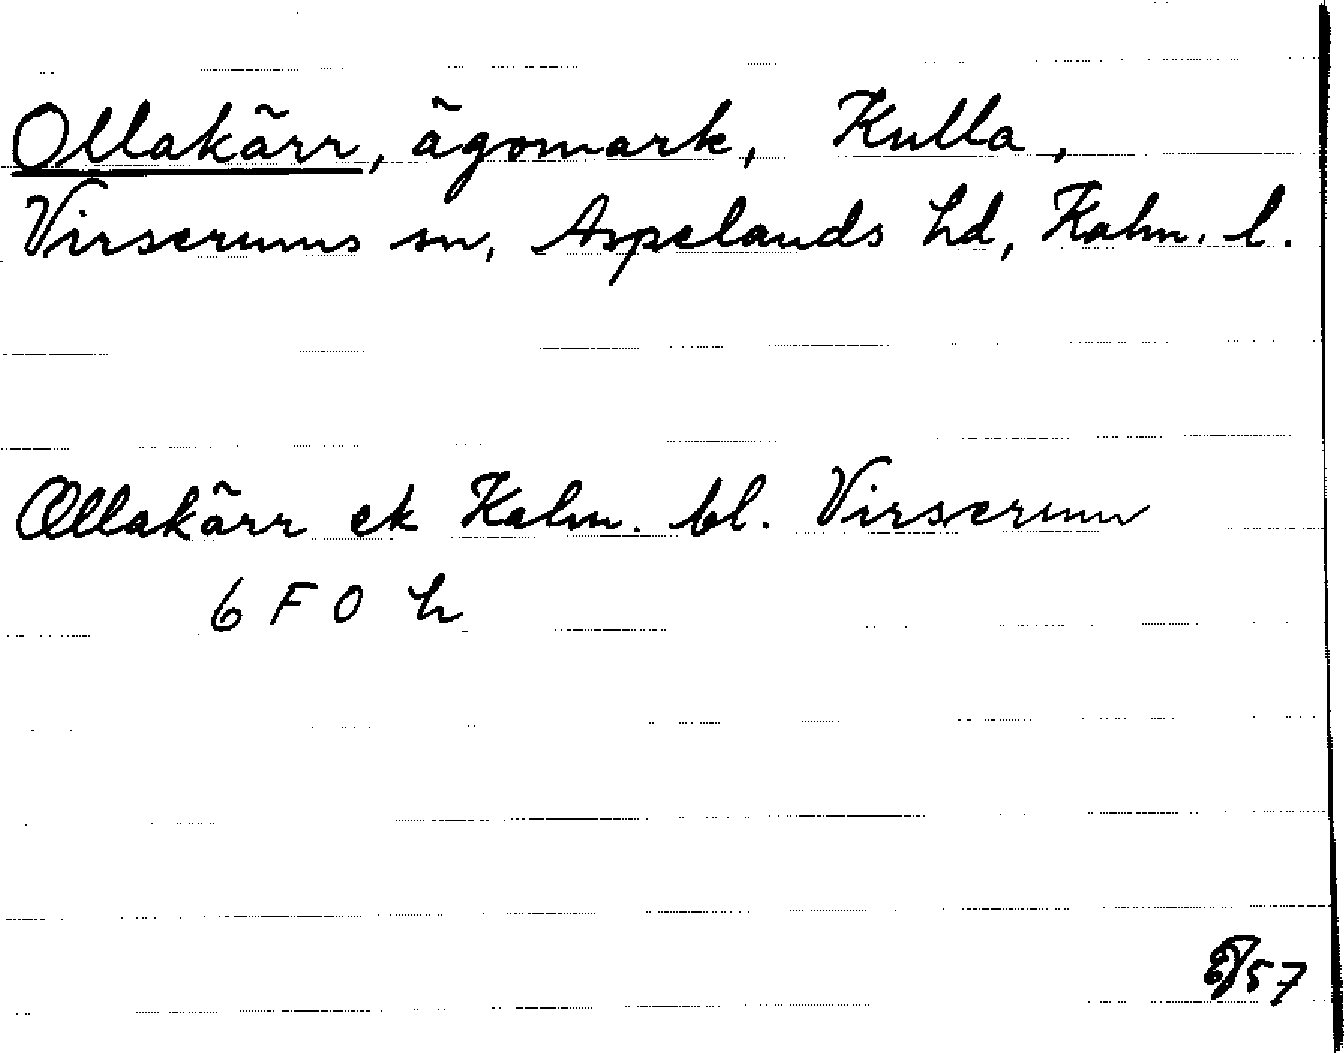 Ollakärr, ägomark, Kulla,
Virserums sn, Aspelands hd, Kalm. l.
Ollakärr ek Kalm. bl. Virserum
6 F 0 h
57